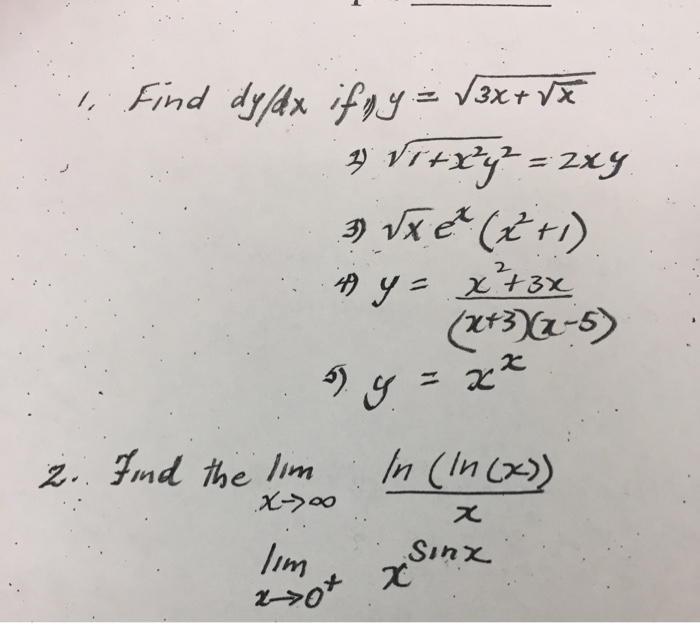 1. Find dy/dx if 1) y = √(3x + √x)
2) √(1+x²y²) = 2xy
3) √x eˣ (x²+1)
4) y = (x²+3x)/((x+3)(x-5))
5) y = xˣ
2. Find the lim x→∞ ln (ln(x))/x
lim x→0⁺ x^(sin x)